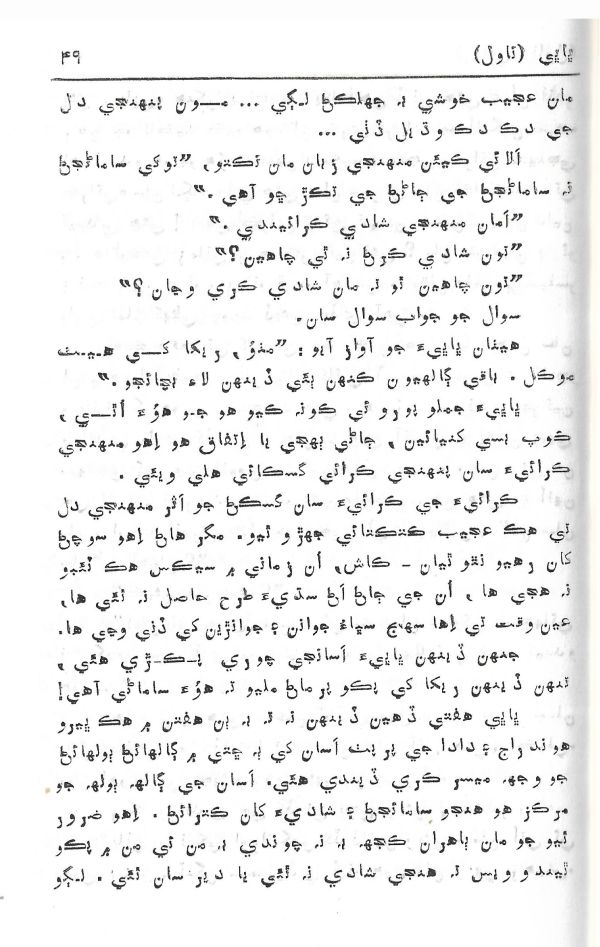 ڀاڀي (ناول)
۴۹
مان عجيب خوشي ۾ جھلڪڻ لڳي ... مون پنهنجي دل
جي دڪ دڪ وڌيل ڏٺي ...
الائي ڪيئن منهنجي زبان مان نڪتو، ”توکي سامائجڻ
نہ سامائجڻ جي ڄاڻڻ جي تڪڙ ڇو آهي .“
”امان منهنجي شادي ڪرائيندي .“
”تون شادي ڪرڻ نہ ٿي چاهين؟“
”تون چاهين ٿو تہ مان شادي ڪري وڃان ؟“
سوال جو جواب سوال سان.
هيٺان ڀاڀيءَ جو آواز آيو : ”منوُ، ريکا کي هيٺ
موڪل . باقي ڳالهيون ڪنهن ٻئي ڏينهن لاءِ بچائجو .“
ڀاڀيءَ جملو پورو ئي ڪونہ ڪيو هو جو هوُءَ اٿي ،
ڪوپ ٻئي کنيائين ، ڄاڻي ٻجھي يا اتفاق هو اهو منهنجي
ڪرائيءَ سان پنهنجي ڪرائي گسڪائي هلي ويئي .
ڪرائيءَ جي ڪرائيءَ سان گسڪڻ جو اثر منهنجي دل
تي هڪ عجيب ڪتڪتائي جهڙو ٿيو. مگر هاڻ اهو سوچڻ
کان رهيو نٿو ٿيان - ڪاش، اُن زماني ۾ سيڪس هڪ ٽئبو
نہ هجي ها ، اُن جي ڄاڻ اڻ سڌيءَ طرح حاصل نہ ٿئي ها،
عين وقت تي اها سهيج سڀاءُ جوانن ۽ جوانڙين کي ڏني وڃي ها.
جنهن ڏينهن ڀاڀيءَ اسانجي چوري پڪڙي هئي ،
تنهن ڏينهن ريکا کي پڪو پرماڻ مليو تہ هوُءَ سامائي آهي!
ڀاڀي هفتي ڏهين ڏينهن نہ تہ بہ ٻن هفتن ۾ هڪ ڀيرو
هوند راڄ ۽ دادا جي پريٺ اسان کي بہ ڇتي ۾ ڳالهائڻ ٻولهائڻ
جو وجھہ ميسر ڪري ڏيندي هئي. اسان جي ڳالھہ ٻولھہ جو
مرڪز هو هنجو سامائجڻ ۽ شاديءَ کان ڪترائڻ . اهو ضرور
ٿيو جو مان ٻاهران ڪجھہ بہ نہ چوندي بہ من ئي من ۾ پڪو
ٿيندو ويس تہ هنجي شادي نہ ٿئي يا دير سان ٿئي . لڳو